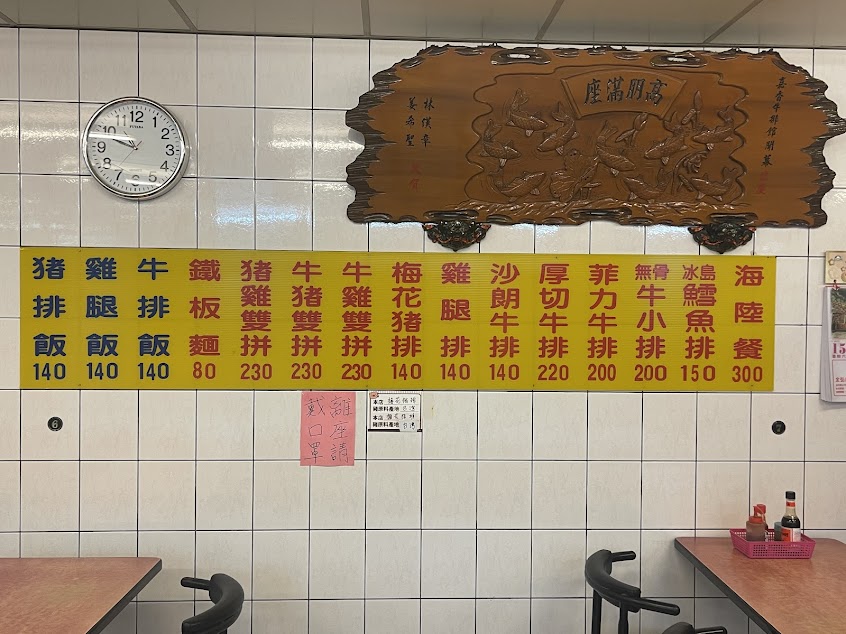 高朋滿座
嘉香牛排館開幕
林儀章
姜希聖
12
豬排飯 140
雞腿飯 140
牛排飯 140
鐵板麵 80
豬雞雙拼 230
牛豬雙拼 230
牛雞雙拼 230
梅花豬排 140
雞腿排 140
沙朗牛排 140
厚切牛排 220
菲力牛排 200
無骨牛小排 200
冰島鱈魚排 150
海陸餐 300
離座請
戴口罩
本店
豬原料產地
本店
豬原料產地
6
7
15